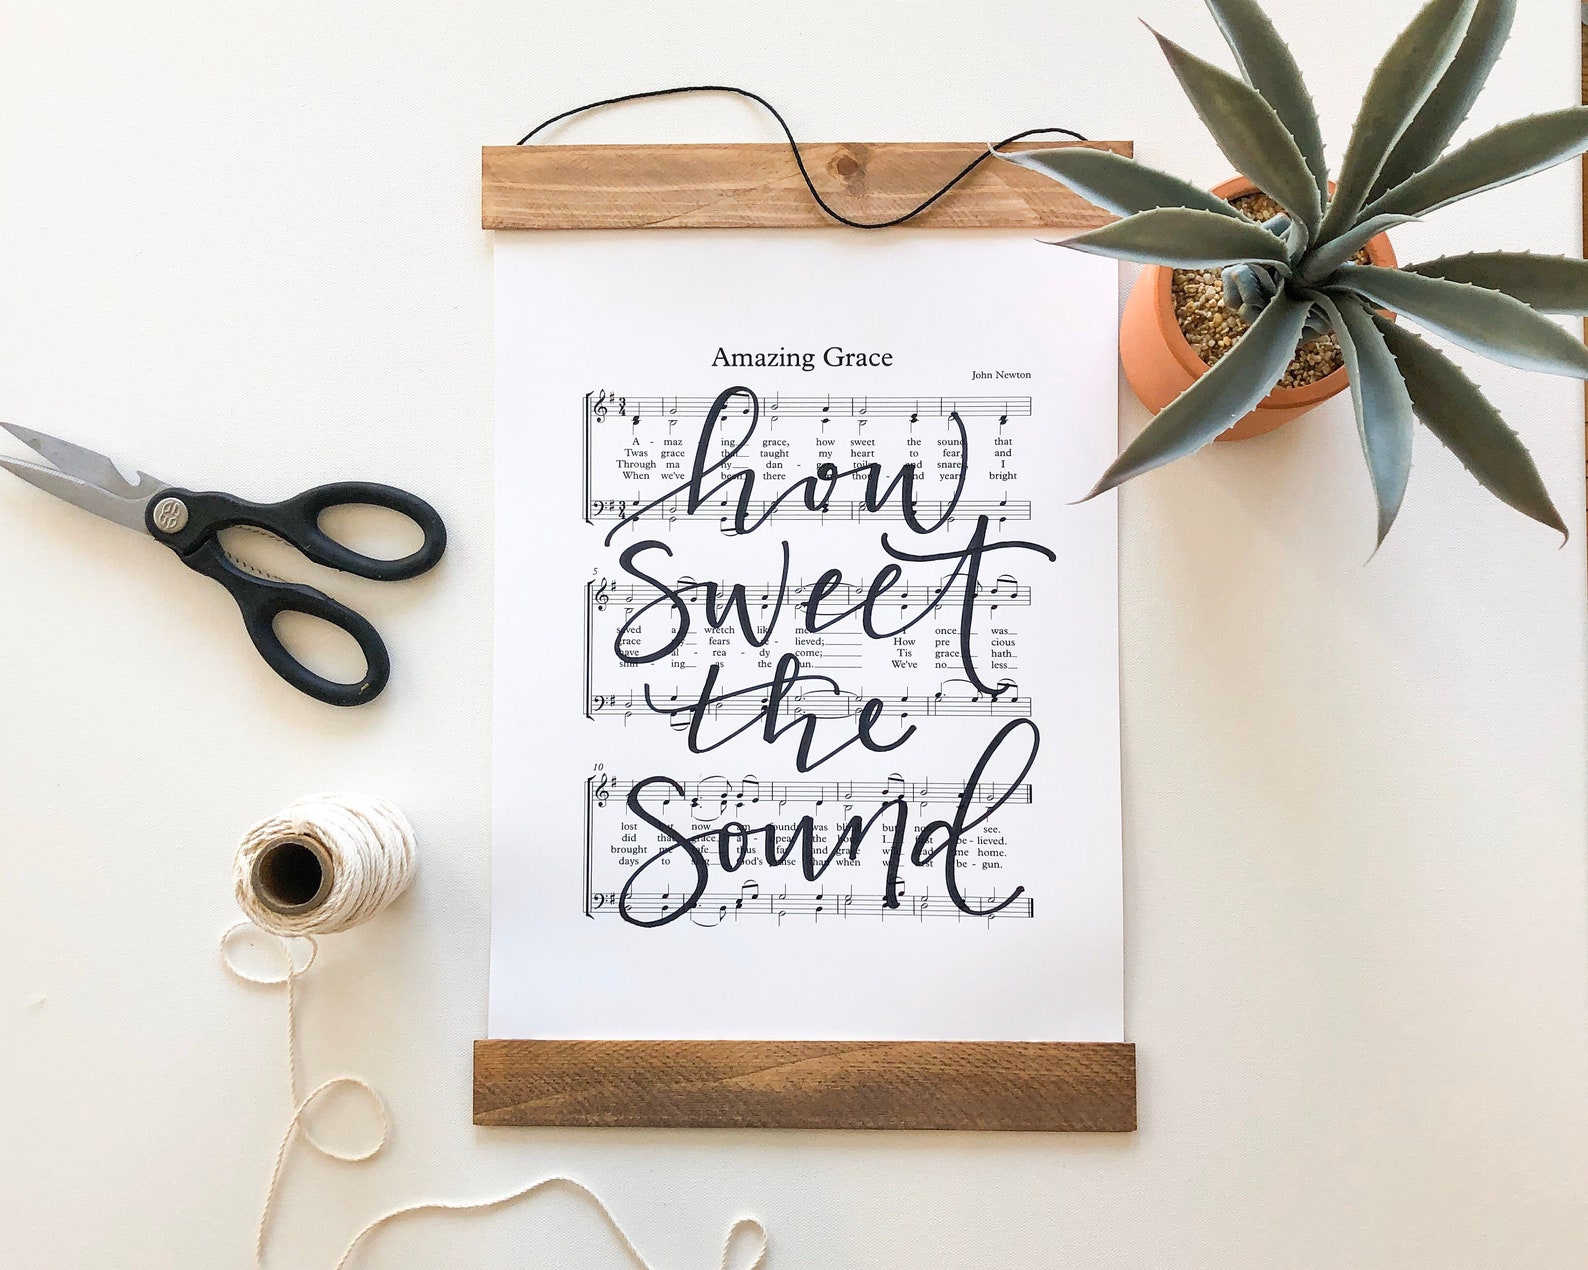 Amazing Grace
John Newton
A - maz - ing grace, how sweet the sound that
Twas grace that taught my heart to fear, and
Through ma ny dan - toils and snares, I
When we've been there thou - and years bright
how
5
saved a wretch like me! I once was
grace my fears re - lieved; How pre cious
have al - rea - dy come; Tis grace hath
shin - ing as the sun. We've no less
sweet
the
10
lost but now am found was blind but now see.
did that grace ap - pear the hour I first be - lieved.
brought me safe thus far and grace will lead me home.
days to sing God's praise than when we first be - gun.
sound